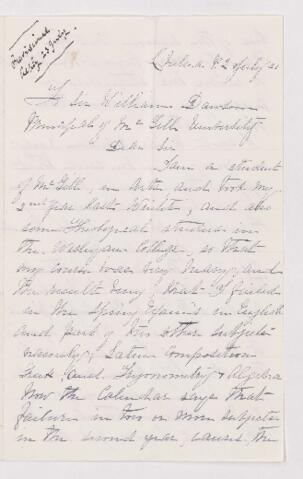 Provisional
July
To Sir William Dawson
Principal of McGill University
Dear Sir
I am a student
of McGill, in Arts and took my
2nd year last Winter, and also
some Theological studies in
the Wesleyan College, so that
my course was very heavy, and
the result being that I failed
in the Spring Exams in English
and part of two other subjects
namely, Latin Composition
and Trigonometry & Algebra
Now the Calendar says that
failure in two or more subjects
in the second year, causes the